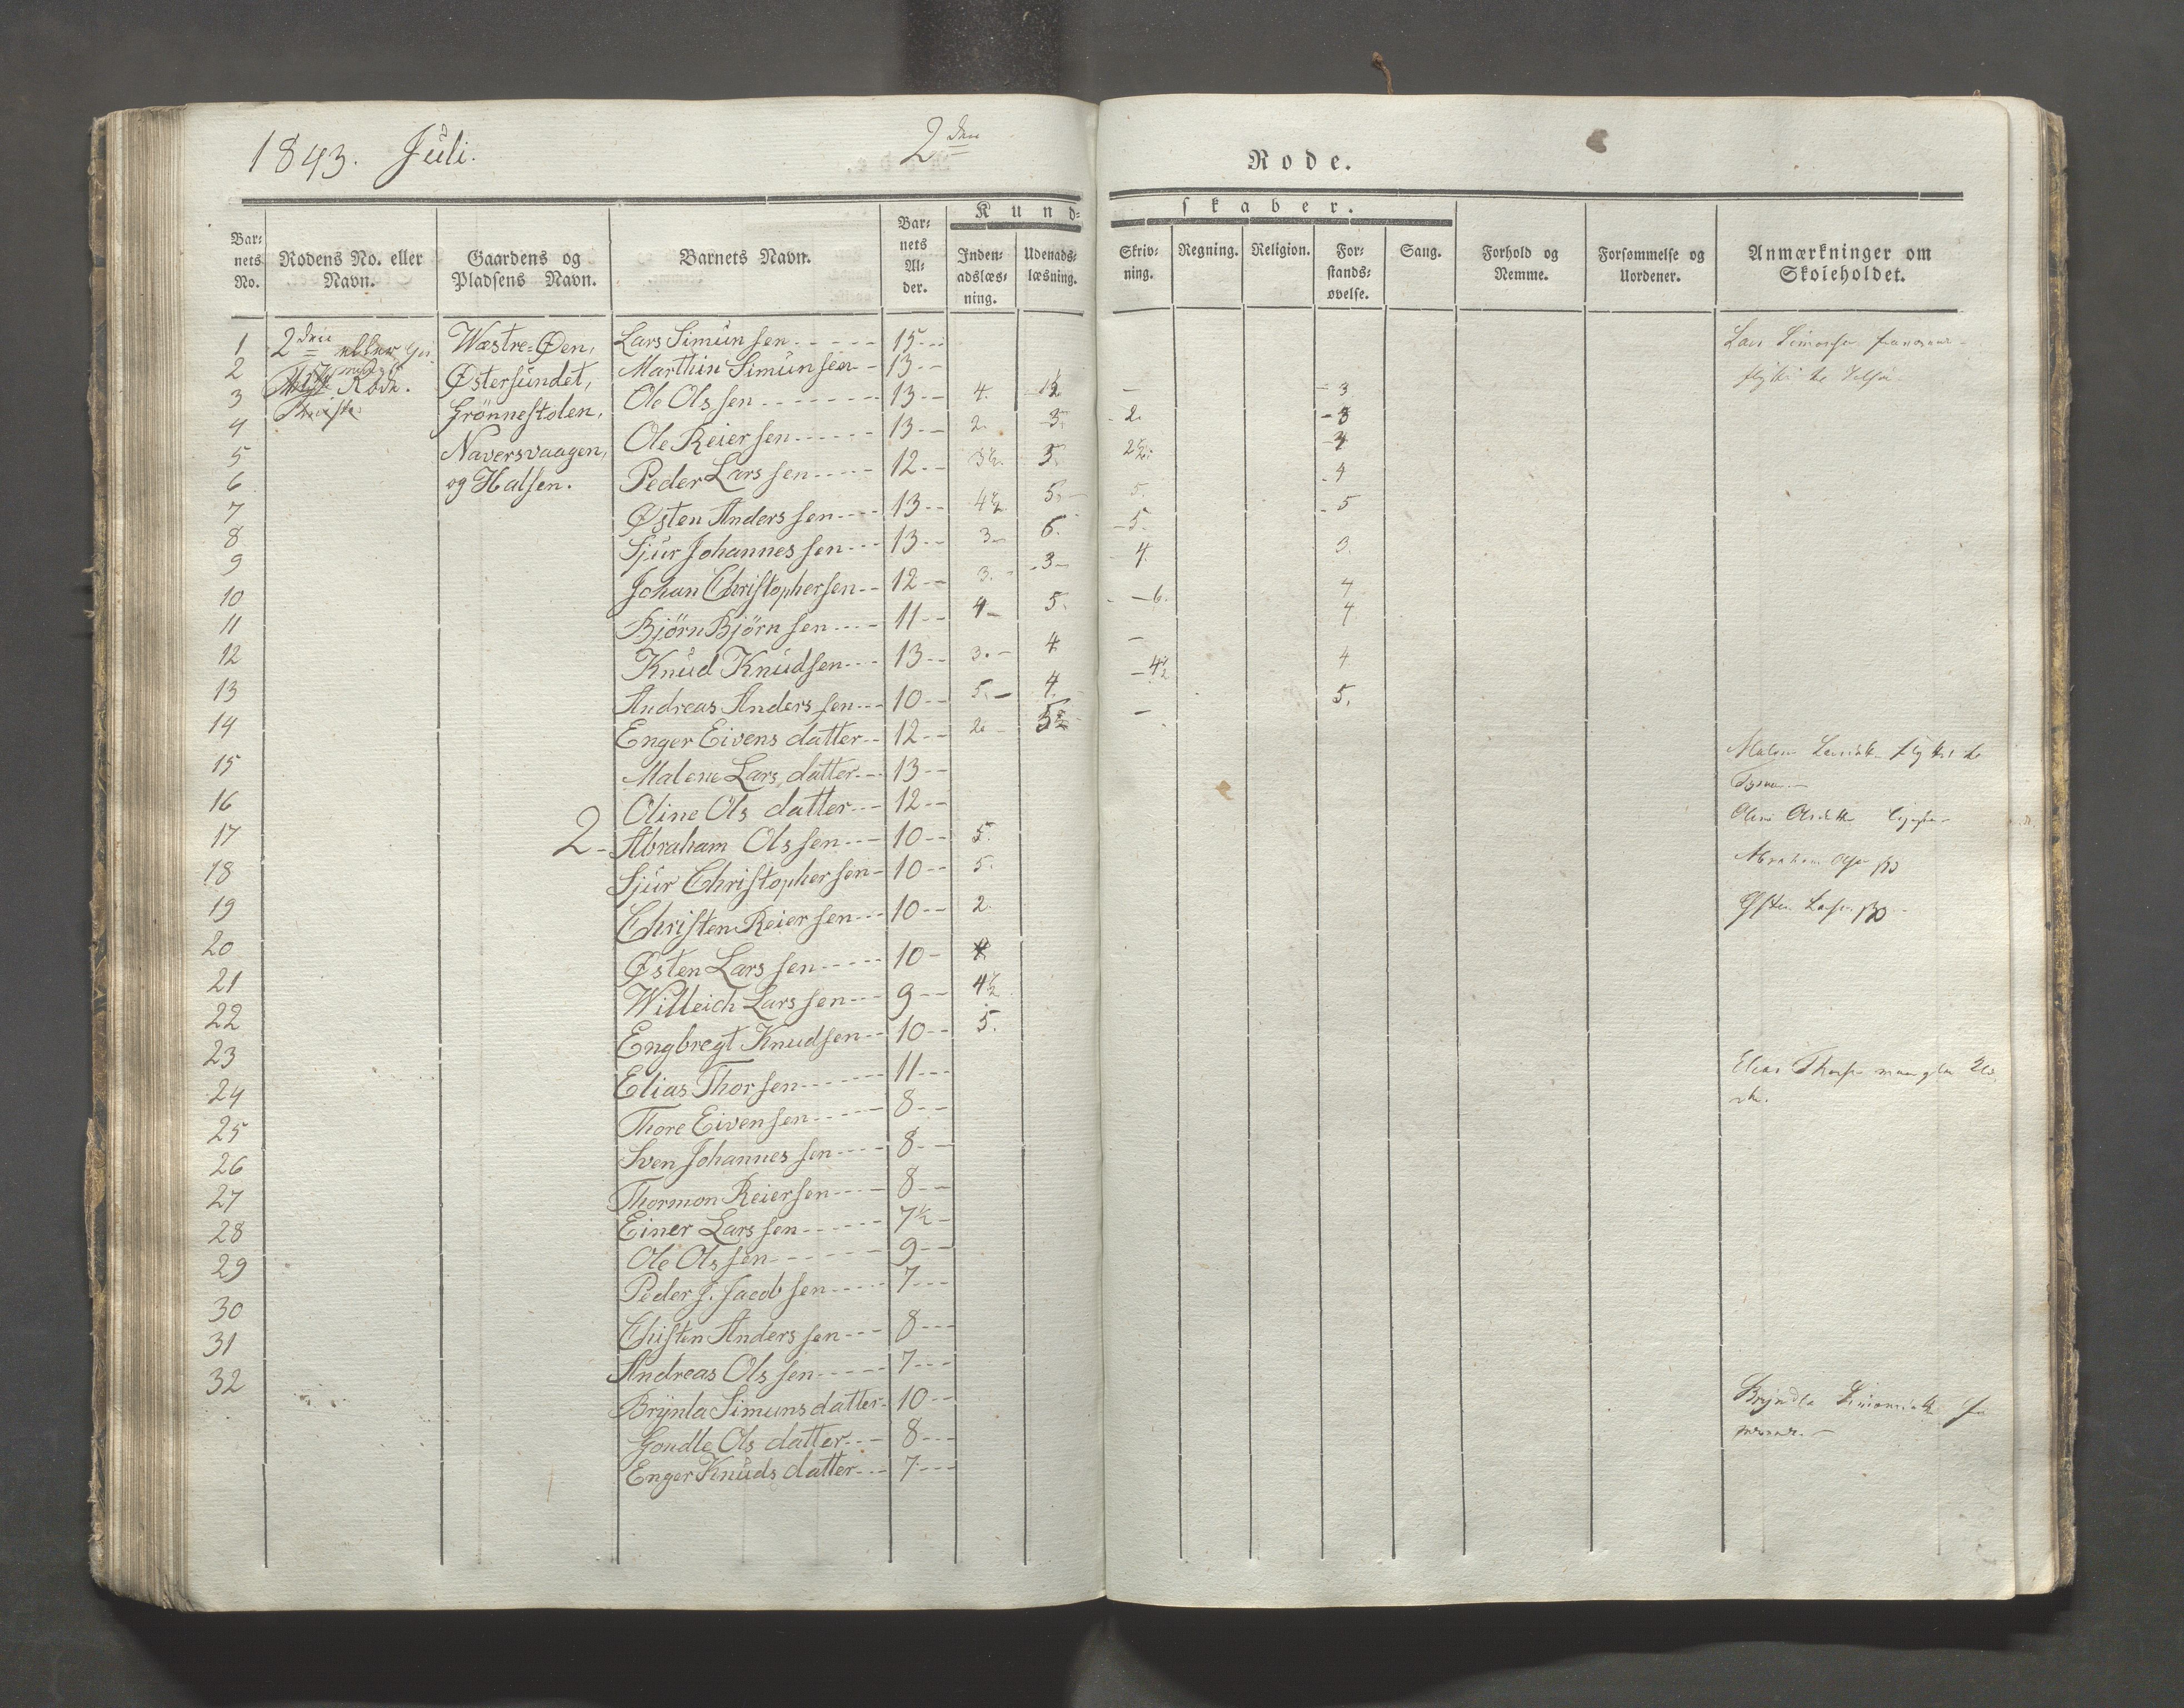 1843. Juli. 2den
Rode.
Barnets No. Rodens No. eller Navn. Gaardens og Pladsens Navn. Barnets Navn. Barnets Alder. Kundskaber. Indenadslæsning. Udenadslæsning. Skrivning. Regning. Religion. Forstandsøvelse. Sang. Forhold og Nemme. Forsømmelse og Uordener. Anmærkninger om Skoleholdet.
1 2den eller Wæstre-Øen, Lars Simunsen 15 Lars Simonsen
2 Østersundet, Marthin Simunsen 13
3 Rode. Grönnestolen, Ole Olssen 13 4. 1½ — 3
4 Naversvaagen, Ole Reiersen 13 2. 3. 2. 3
5 og Halsen. Peder Larssen 12 3½. 3. 2½. 4
6 Østen Anderssen 13 4½ 5. 5. 4
7 Sjur Johannessen 13 3 6. 5. 5
8 Johan Christophersen 12 3. 3 4. 3.
9 Björn Björnsen 11 4 5. 6. 4
10 Knud Knudsen 13 3. 4 — 4
11 Andreas Anderssen 10 5. 4. 4½ 4
12 Enger Eivens datter 12 2 5½ — 5.
13 Malene Lars datter 13 Malene Larsdatter
14 Oline Ols datter 12 Oline Olsdatter
15 2 Abraham Olssen 10 5. Abraham Olsen
16 Sjur Christophersen 10 5.
17 Christen Reiersen 10 2.
18 Østen Larssen 10 4 Østen Larsen
19 Willeich Larssen 9 4½
20 Engbregt Knudsen 10 5.
21 Elias Thorsen 11 Elias Thorsen mangler
22 Thore Eivensen 8
23 Sven Johannessen 8
24 Thormon Reiersen 8
25 Einer Larssen 7½
26 Ole Olssen 9
27 Peder J. Jacobsen 7
28 Christen Anderssen 8
29 Andreas Olssen 7
30 Brÿnla Simuns datter 10
31 Gondle Ols datter 8
32 Enger Knuds datter 7